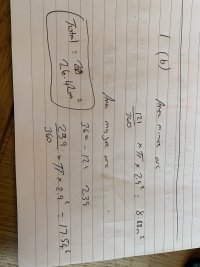 1 (b) Area minor arc
121/360 × π × 2.9² = 8.88m²
Area major arc
360 - 121 239
239/360 × π × 2.9² = 17.54²
Total =
26.42m²